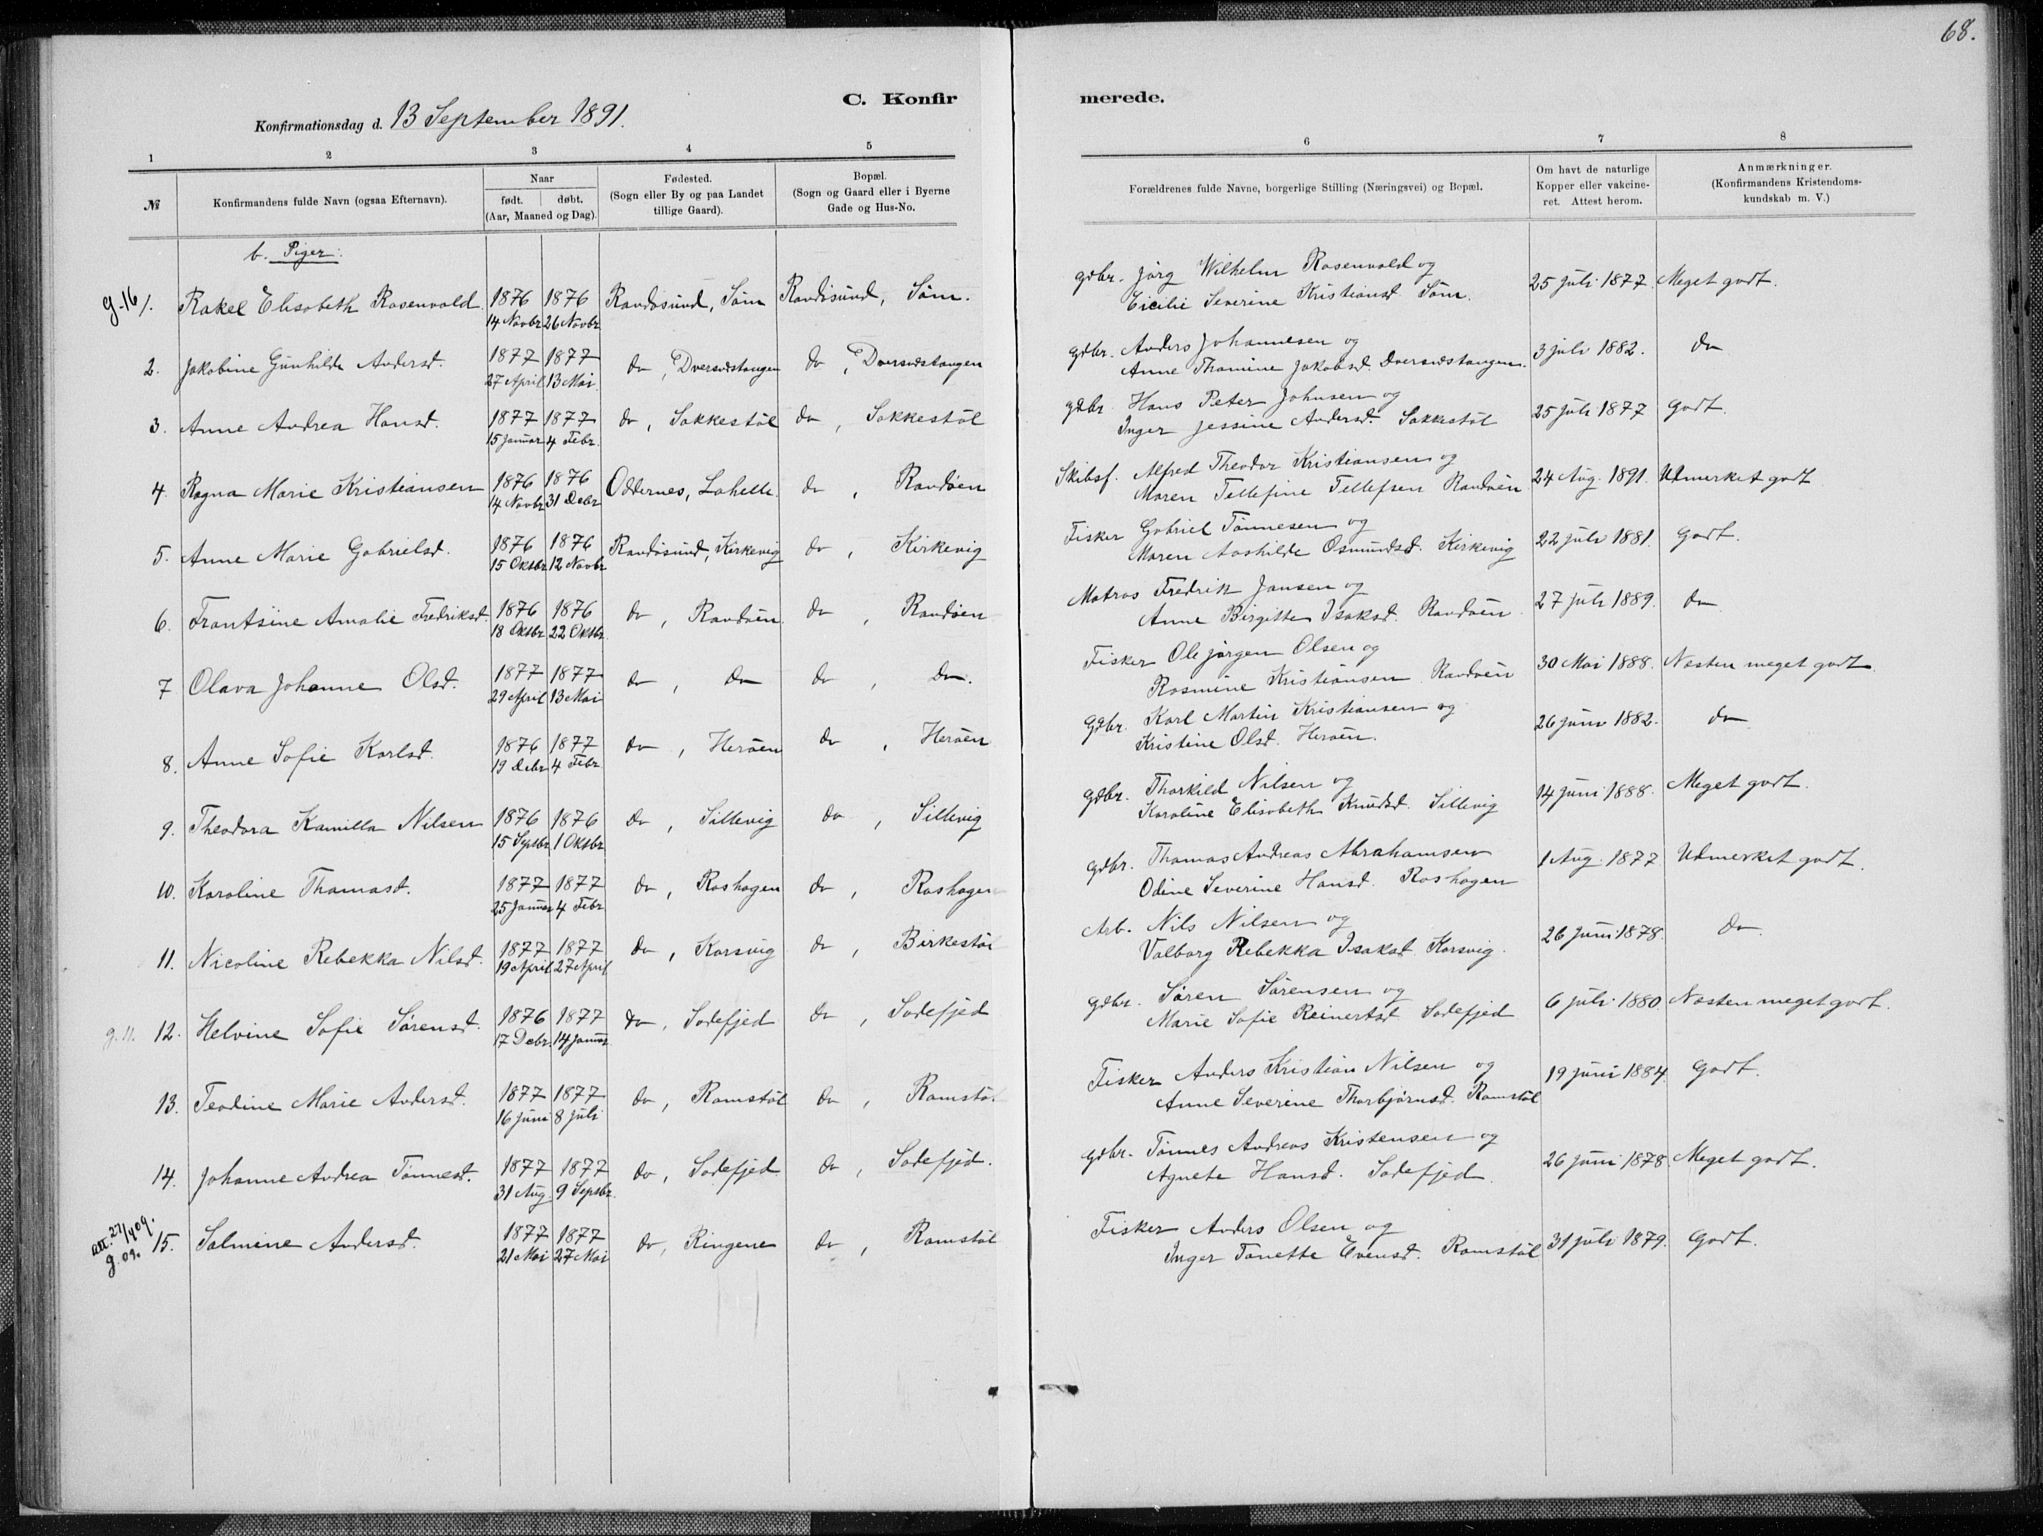 68.
C. Konfir merede.
Konfirmationsdag d. 13 September 1891.
1 2 3 4 5 6 7 8
№ Konfirmandens fulde Navn (ogsaa Efternavn). Naar født. døbt. (Aar, Maaned og Dag). Fødested. (Sogn eller By og paa Landet tillige Gaard). Bopæl. (Sogn og Gaard eller i Byerne Gade og Hus-No. Forældrenes fulde Navne, borgerlige Stilling (Næringsvei) og Bopæl. Om havt de naturlige Kopper eller vakcineret. Attest herom. Anmærkninger. (Konfirmandens Kristendomskundskab m. V.)
b. Piger:
g. 16 1. Rakel Elisabeth Rosenvold 1876 14 Novbr 1876 26 Novbr Randøsund, Søm Randøsund, Søm. Gdbr. Jörg Wilhelm Rosenvold og
Cicilie Severine Kristiansd. Søm. 25 juli 1877. Meget godt.
2. Jakobine Gunhilde Andersd. 1877 27 April 1877 13 Mai do, Dversdstangen do, Dversdstangen Gdbr. Anders Johannesen og
Anne Thomine Jakobsd. Dversdstangen. 3 juli 1882. do
3. Anne Andrea Hansd. 1877 15 Januar 1877 4 Febr. do, Sakkestøl do, Sakkestøl Gdbr. Hans Peter Johnsen og
Inger Jessine Andersd. Sakkestøl 25 juli 1877 Godt.
4. Ragna Marie Kristiansen 1876 14 Novbr 1876 31 Debr Oddernes, Lahelle do, Randøen Skibsf. Alfred Theodor Kristiansen og
Maren Tellefine Tellefsen Randøen 24 Aug. 1891. Udmerket godt
5. Anne Marie Gabrielsd. 1876 15 Oktbr 1876 12 Novbr Randøsund, Kirkevig do, Kirkevig Fisker Gabriel Tønnesen og
Maren Aashilde Osmundsd. Kirkevig 22 juli 1881. Godt.
6. Frantsine Amalie Fredriksd. 1876 18 Oktbr 1876 22 Oktbr. do, Randøen do, Randøen Matros Fredrik Jansen og
Anne Birgitte Isaksd. Randøen 27 juli 1889. do
7 Olava Johanne Olsd. 1877 29 April 1877 13 Mai do, do do, do. Fisker Ole Jørgen Olsen og
Rosmine Kristiansen Randøen 30 Mai 1888. Næsten meget godt
8. Anne Sofie Karlsd. 1876 19 Debr 1877 4 Febr do, Herøen do, Herøen Gdbr. Karl Martin Kristiansen og
Kristine Olsd. Herøen. 26 juni 1882. do
9. Theodora Kamilla Nilsen 1876 15 Septbr 1876 1 Oktbr do, Sillevig do, Sillevig Gdbr. Thorkild Nilsen og
Karoline Elisabeth Knudsd. Sillevig 14 juni 1888. Meget godt.
10. Karoline Thomasd. 1877 25 Januar 1877 4 Febr do, Roshagen do, Roshagen Gdbr. Thomas Andreas Abrahamsen
Odine Severine Hansd. Roshagen 1 Aug. 1877 Udmerket godt.
11. Nicoline Rebekka Nilsd. 1877 19 April 1877 27 April do, Korsvig do, Birkestøl Arb. Nils Nilsen og
Valborg Rebekka Isaksd. Korsvig. 26 juni 1878. do
g. 11. 12. Helvine Sofie Sørensd. 1876 17 Debr. 1877 14 Januar do, Sodefjed do, Sodefjed Gdbr. Søren Sørensen og
Marie Sofie Reinertsd Sodefjed 6 juli 1880. Næsten meget godt.
13. Teodine Marie Andersd. 1877 16 Juni 1877 8 Juli do, Romstøl do, Romstøl Fisker Anders Kristian Nilsen og
Anne Severine Thorbjørnsd. Romstøl 19 juni 1884. Godt.
14. Johanne Andrea Tønnesd. 1877 31 Aug. 1877 9 Septbr. do, Sodefjed do, Sodefjed. Gdbr. Tønnes Andreas Kristensen og
Agnete Hansd. Sodefjed 26 juni 1878. Meget godt.
att. 27/4 09. g. 09. 15. Salmine Andersd. 1877 21 Mai 1877 27 Mai do, Ringene do, Romstøl Fisker Anders Olsen og
Inger Tonette Evensd. Romstøl 31 juli 1879. Godt.